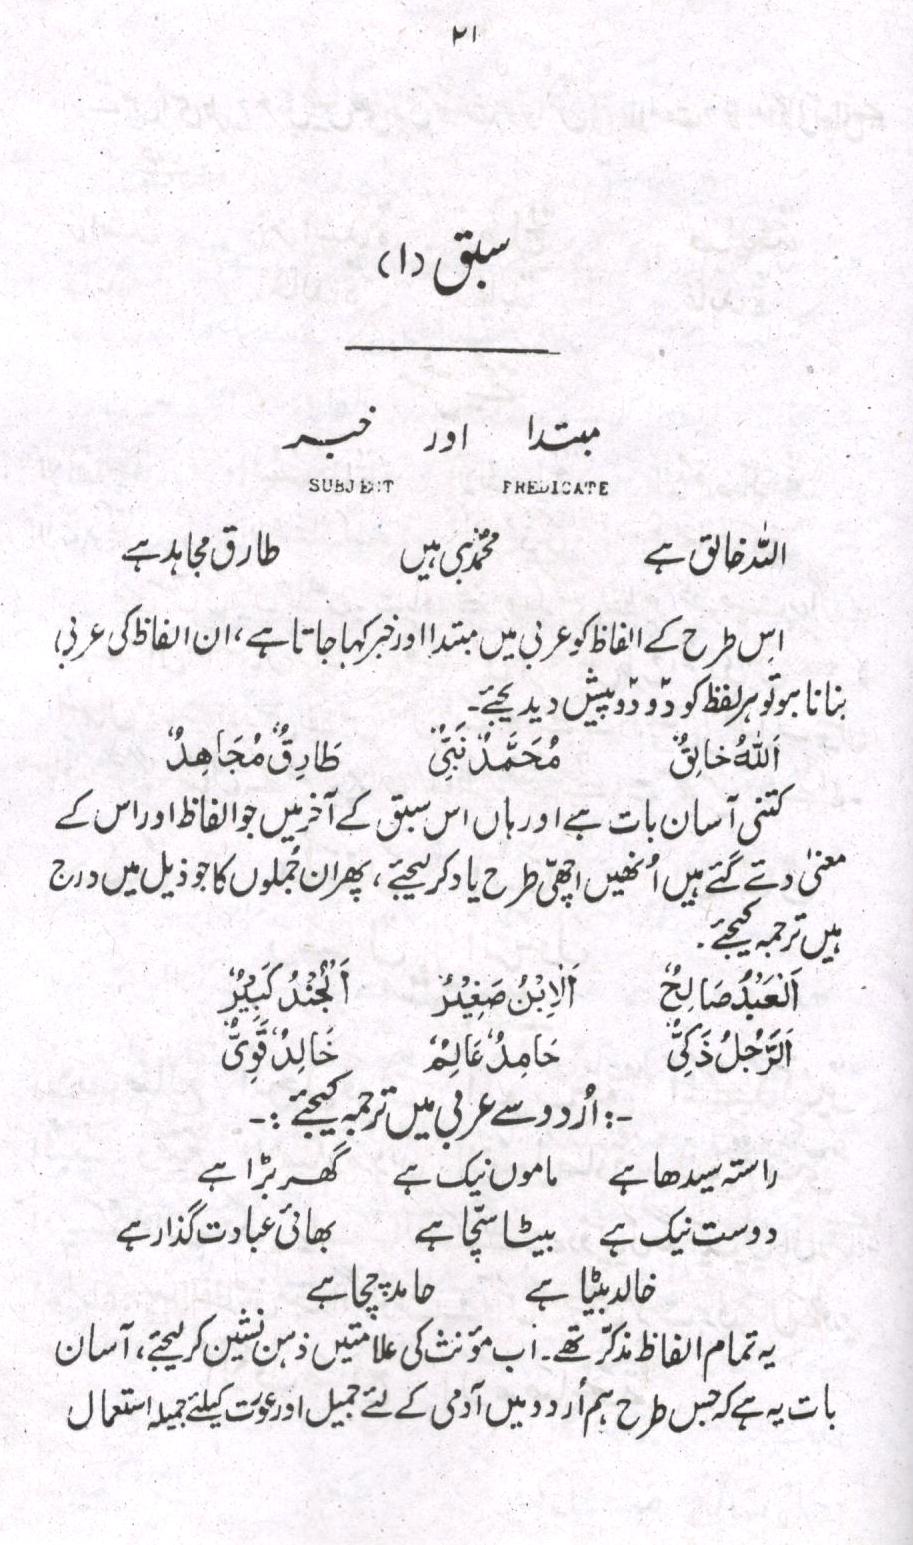 ۲۱
سبق (۱)
مبتدا اور خبر
SUBJECT PREDICATE
اللہ خالق ہے محمدؐ نبی ہیں طارق مجاہد ہے
اس طرح کے الفاظ کو عربی میں مبتدا اور خبر کہا جاتا ہے، ان الفاظ کی عربی
بنانا ہو تو ہر لفظ کو دو دو پیش دیدیجئے۔
اَللّٰهُ خَالِقٌ مُحَمَّدٌ نَبِيٌّ طَارِقٌ مُجَاهِدٌ
کتنی آسان بات ہے اور ہاں اس سبق کے آخر میں جو الفاظ اور اس کے
معنیٰ دئے گئے ہیں اُنھیں اچھی طرح یاد کرلیجئے، پھر ان جُملوں کا جو ذیل میں درج
ہیں ترجمہ کیجئے۔
اَلْعَبْدُ صَالِحٌ اَلْاِبْنُ صَغِيْرٌ اَلْجُنْدُ كَبِيْرٌ
اَلرَّجُلُ ذَكِيٌّ حَامِدٌ عَالِمٌ خَالِدٌ قَوِيٌّ
-: اُردو سے عربی میں ترجمہ کیجئے :-
راستہ سیدھا ہے ماموں نیک ہے گھر بڑا ہے
دوست نیک ہے بیٹا سچّا ہے بھائی عبادت گذار ہے
خالد بیٹا ہے حامد چچا ہے
یہ تمام الفاظ مذکّر تھے۔ اب مؤنث کی علامتیں ذہن نشین کرلیجئے، آسان
بات یہ ہے کہ جس طرح ہم اُردو میں آدمی کے لئے جمیل اور عورت کیلئے جمیلہ استعمال